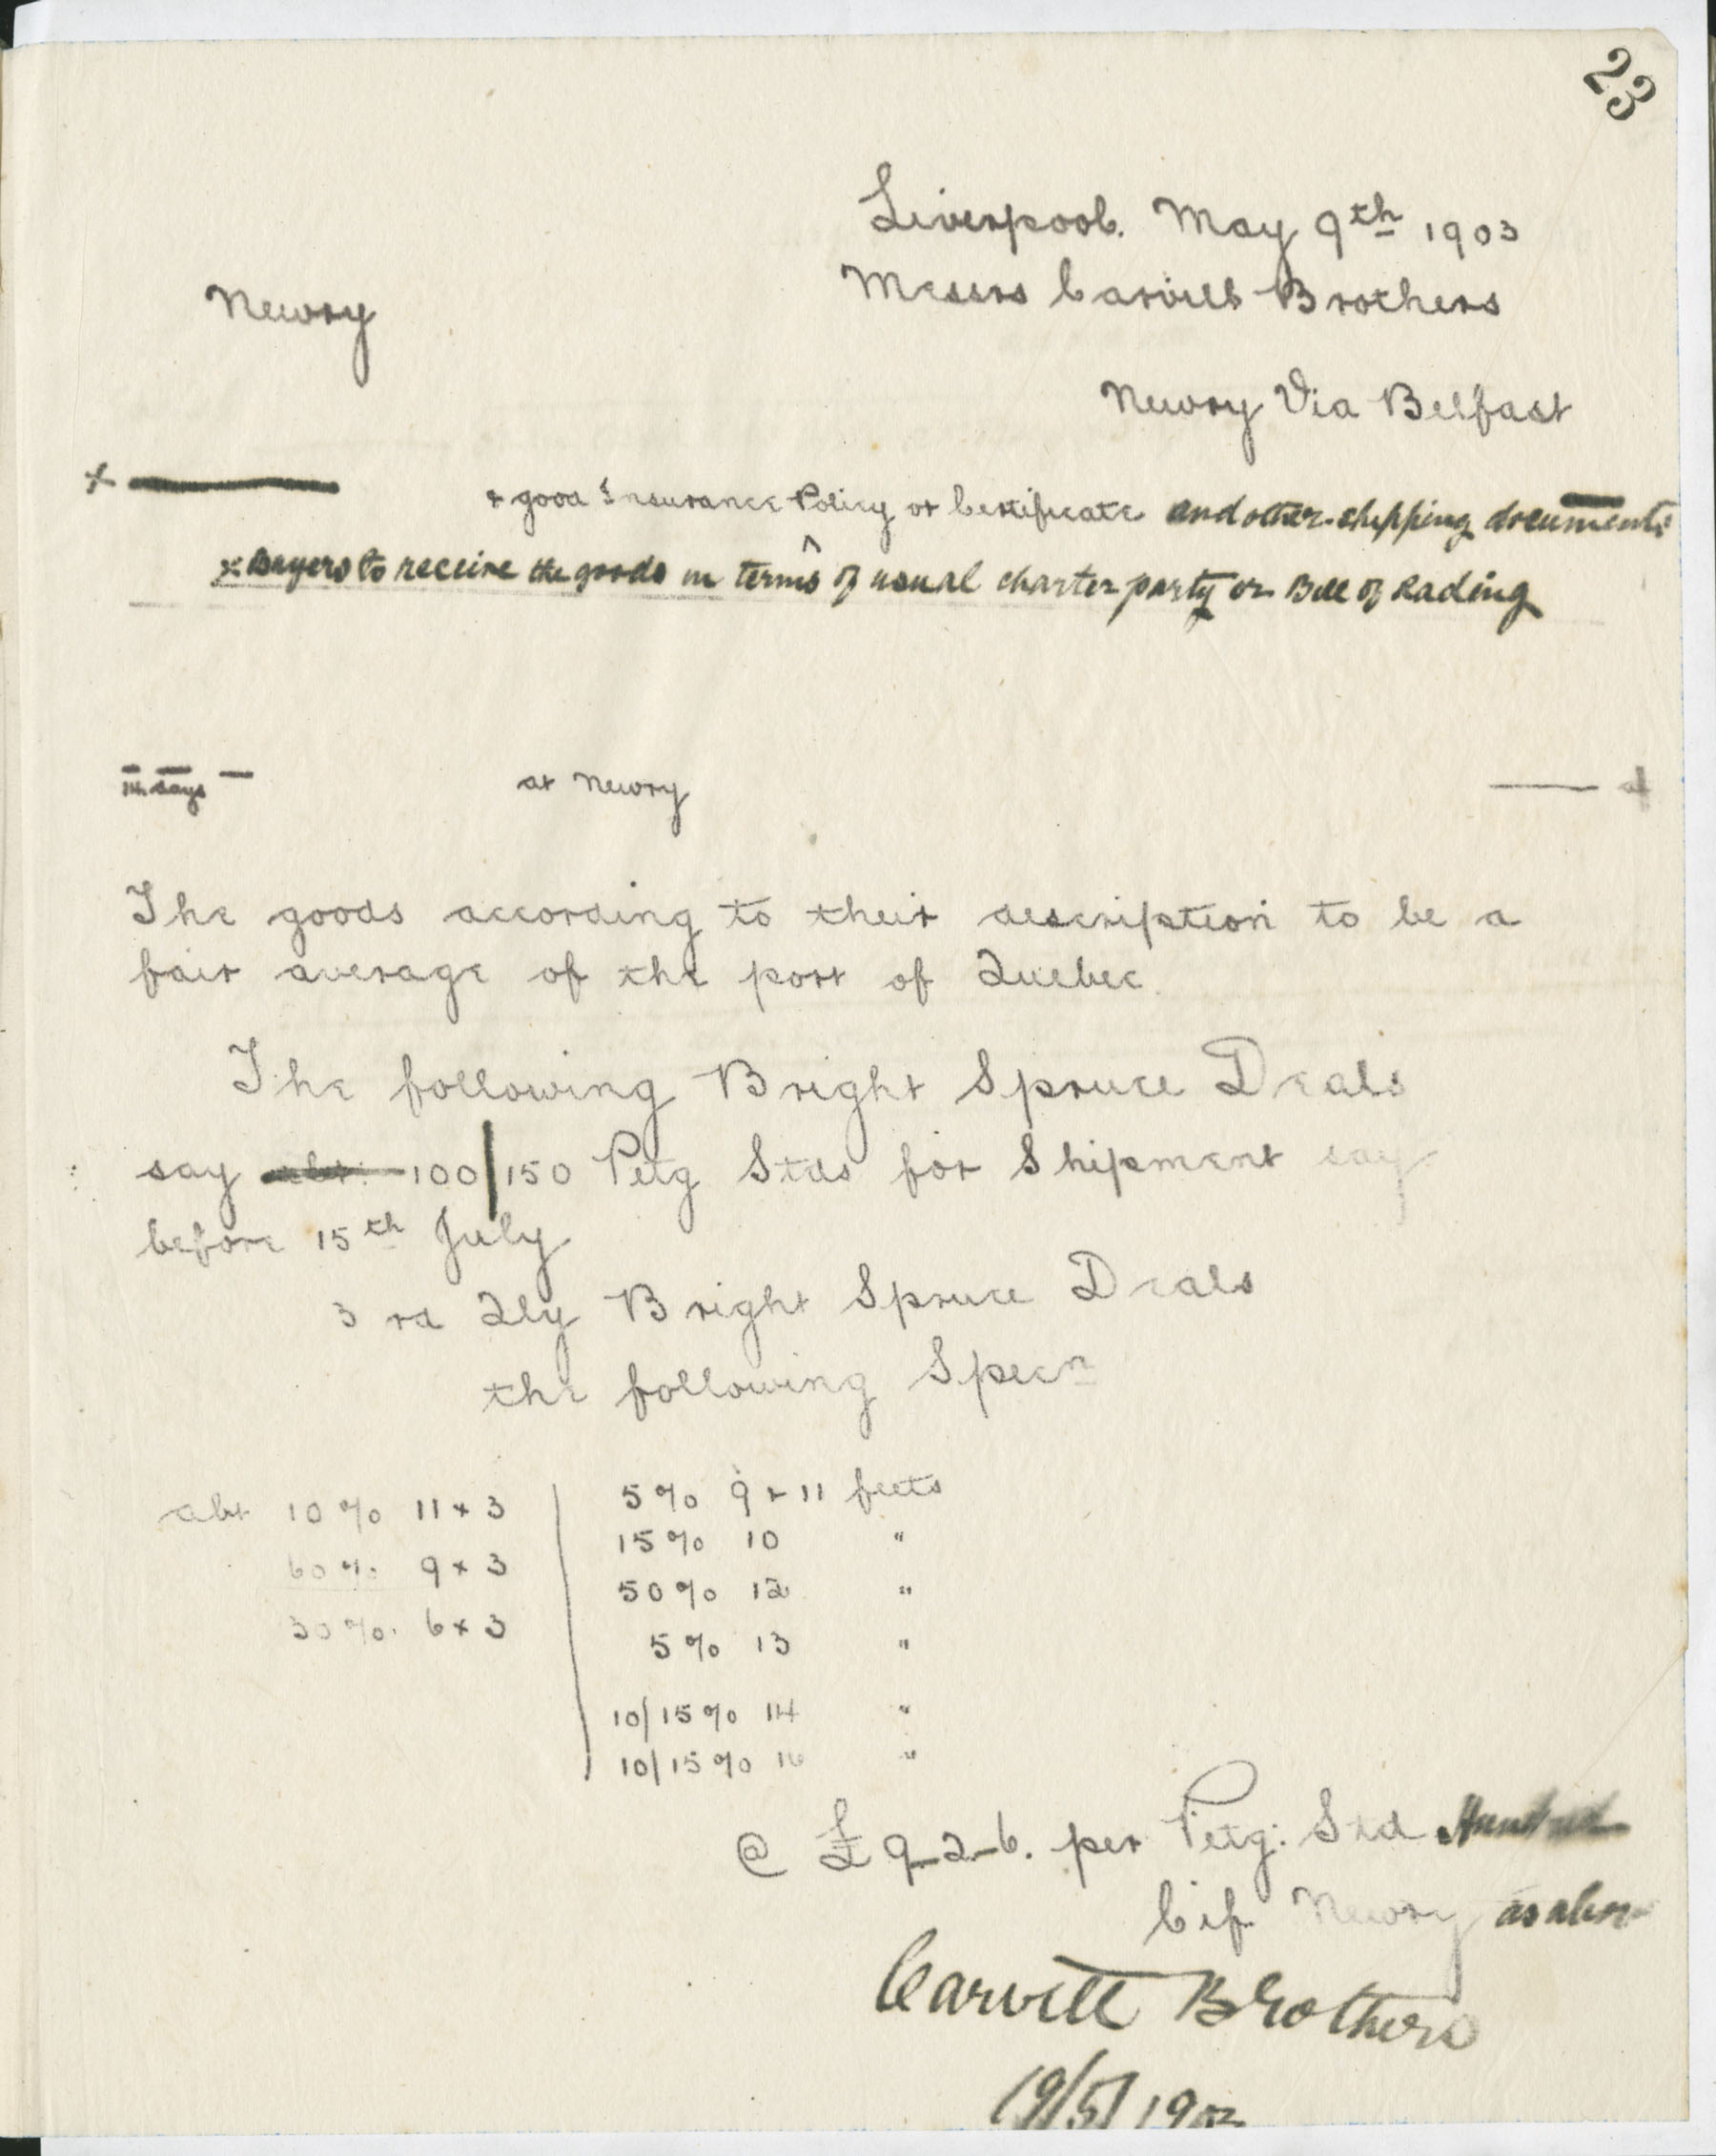 23
Liverpool. May 9th 1903
Messrs Carvill Brothers
Newry
Newry Via Belfast
& good Insurance Policy or Certificate and other shipping documents
x Buyers to receive the goods in terms of usual charter party or Bill of Lading
14 days at Newry
The goods according to their description to be a
fair average of the port of Quebec.
The following Bright Spruce Deals
say abt. 100/150 Petg Stds for Shipment say
before 15th July
3rd Qly Bright Spruce Deals
the following Specn
abt 10% 11 x 3
60% 9 x 3
30%. 6 x 3
5% 9 & 11 feets
15% 10 "
50% 12 "
5% 13 "
10/15% 14 "
10/15% 16 "
@ £9-2-6. per Petg: Std Hundred
Cif Newry as above
Carvill Brothers
19/5/1903